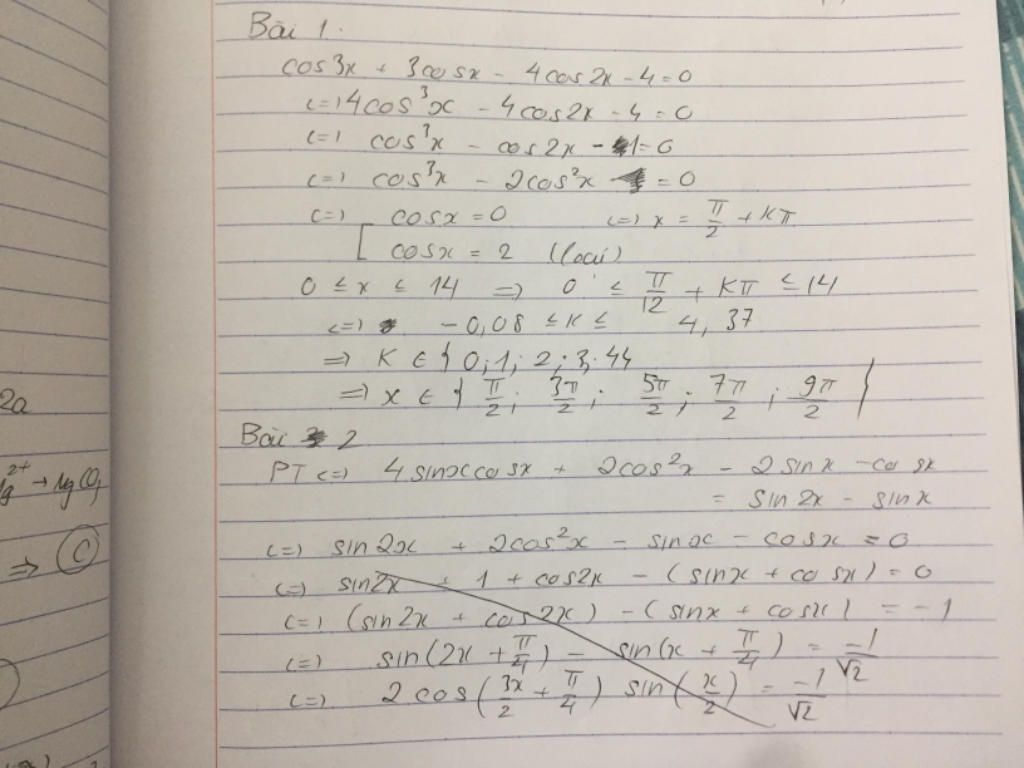 Bài 1.
cos3x + 3cosx - 4cos2x - 4 = 0
<=> 4cos³x - 4cos2x - 4 = 0
<=> cos³x - cos2x - 1 = 0
<=> cos³x - 2cos²x = 0
<=> [ cosx = 0 <=> x = π/2 + kπ
cosx = 2 (loại)
0 ≤ x ≤ 14 => 0 ≤ π/12 + kπ ≤ 14
<=> -0,08 ≤ k ≤ 4,37
=> K ∈ { 0; 1; 2; 3; 44
=> x ∈ { π/2; 3π/2; 5π/2; 7π/2; 9π/2 }
Bài 2
PT <=> 4sinxcosx + 2cos²x - 2sinx - cosx
= sin2x - sinx
<=> sin2x + 2cos²x - sinx - cosx = 0
<=> sin2x + 1 + cos2x - (sinx + cosx) = 0
<=> (sin2x + cos2x) - (sinx + cosx) = -1
<=> sin(2x + π/4) - sin(x + π/4) = -1/√2
<=> 2cos(3x/2 + π/4) sin(x/2) = -1/√2
2a
2+ → MgCO₃
=> C